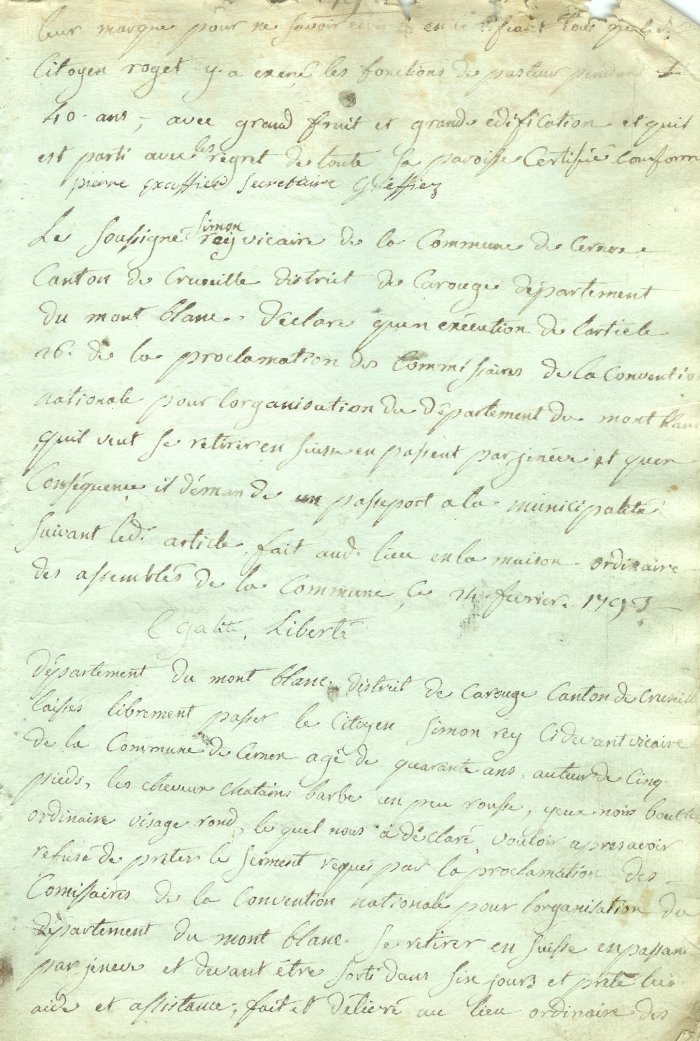 leur marque pour ne savoir en tous que le
Citoyen roget y a exercé les fonctions de pasteur pendant
40 ans, avec grand fruit et grande edification et quil
est parti avec les regret de toute sa paroisse Certifié Conforme
pierre secretaire Greffiez
Le soussigné Simon rey vicaire de la Commune de Cerner
Canton de Cruseille district de Carouge département
du mont blanc. déclare quen exécution de larticle
26. de la proclamation des Commissaires de la Conventio
nationale pour lorganisation du département du mont blanc
quil veut se retirer en suisse en passent par jeneve et quen
Conséquence il démande un passeport a la municipalité
suivant led. article, fait aud. lieu en la maison ordinaire
des assemblés de la Commune, ce 24 fevrier 1793
Egalité, Liberté
département du mont blanc district de Carouge Canton de Cruseille
laisses librement passer le Citoyen Simon rey Cidevant vicaire
de la Commune de Cerner agé de quarante ans, auteur de Cinq
pieds, les cheveux chatains barbe un peu rousse, yeux noir
ordinaire visage rond, le quel nous a déclaré, vouloir apres avoir
refusé de préter le serment requis par la proclamation des
Comissaires de la Convention nationale pour lorganisation du
département du mont blanc se retirer en suisse en passant
par jeneve et devant être sorti dans six jours et prété lui
aide et assistance, fait et délivré au lieu ordinaire des